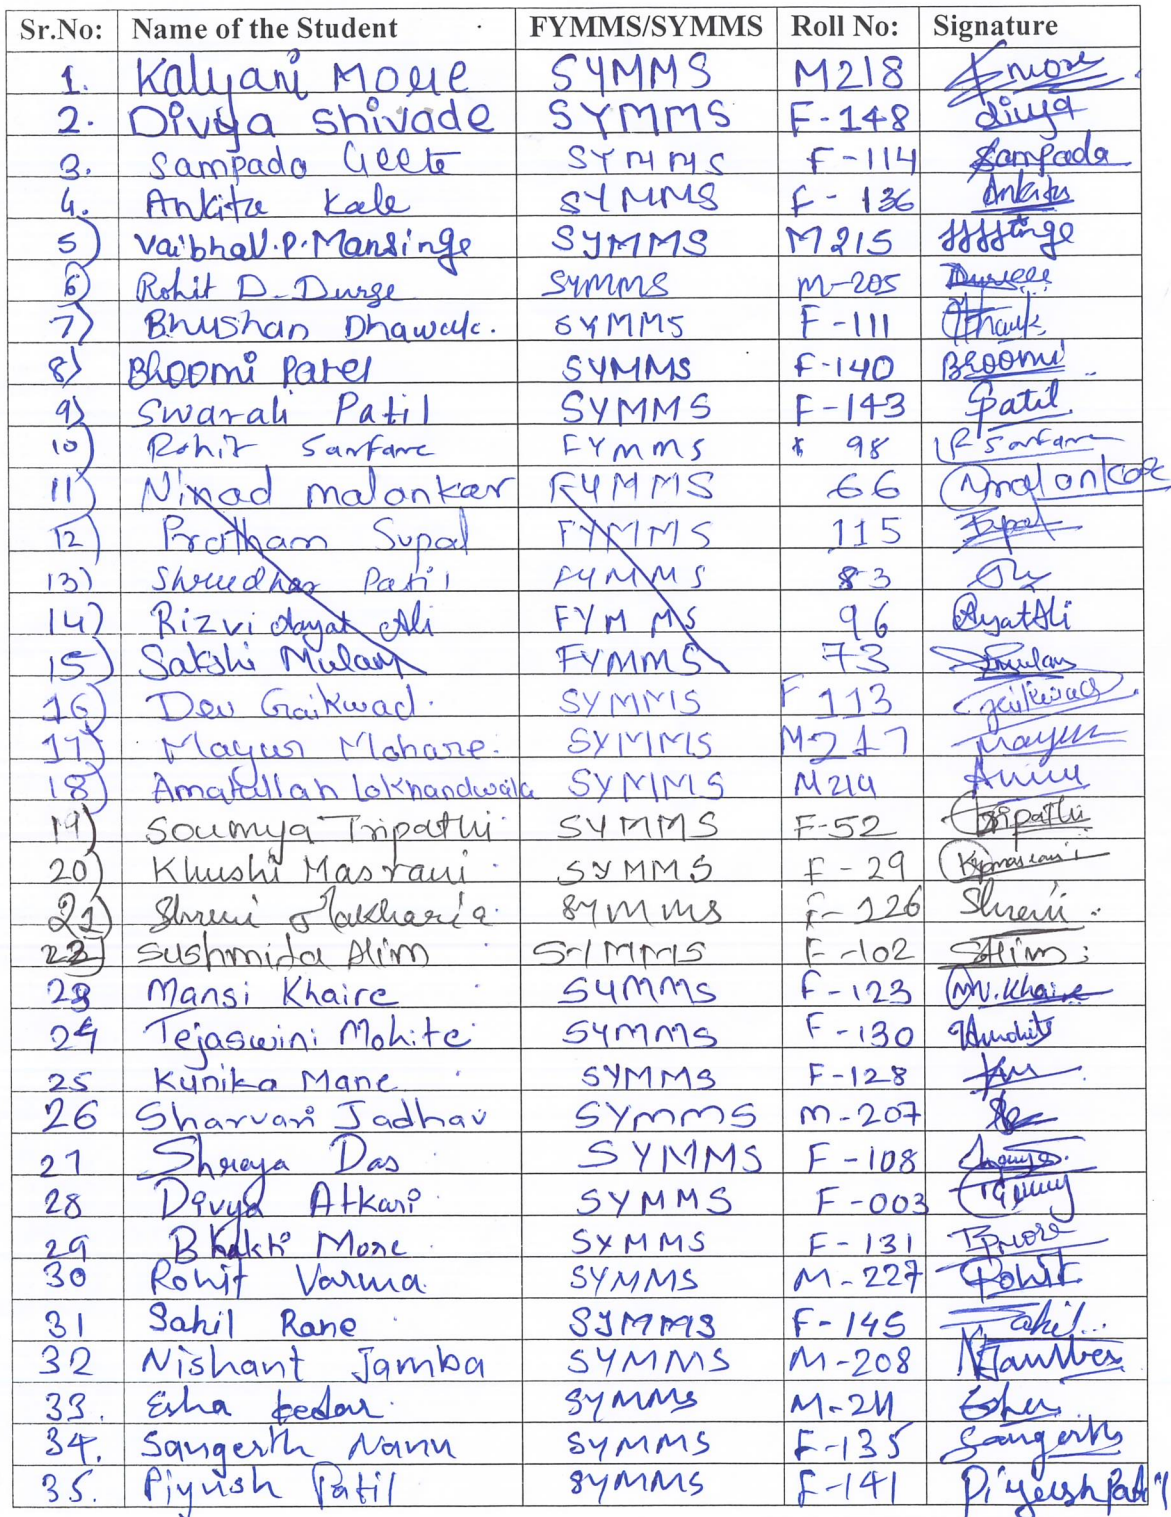 Sr.No: Name of the Student FYMMS/SYMMS Roll No: Signature
1. Kalyani More SYMMS M218 Kmore
2. Divya Shivade SYMMS F-148 divya
3. Sampada Geete SYMMS F-114 Sampada
4. Ankita Kale SYMMS F-136 Ankita
5) Vaibhav.P.Mansinge SYMMS M215
6) Rohit D. Durge SYMMS M-205
7) Bhushan Dhawale. SYMMS F-111
8) Bhoomi Patel SYMMS F-140 Bhoomi
9) Swarali Patil SYMMS F-143 Spatil
10) Rohit Sarfare FYMMS 98 R Sarfare
11) Ninad Malankar FYMMS 66 Nmalankar
12) Pratham Supal FYMMS 115
13) Shreedhar Patil FYMMS 83
14) Rizvi Aayat Ali FYMMS 96 AyatAli
15) Sakshi Mulam FYMMS 73 Smulam
16) Dev Gaikwad. SYMMS F 113 Gaikwad
17) Mayur Mohare. SYMMS M217 Mayur
18) Amatullah Lokhandwala SYMMS M219
19) Soumya Tripathi SYMMS F-52 Tripathi
20) Khushi Masrani SYMMS F-29 Kmasrani
21) Shreni Makharia SYMMS F-126 Shreni
22) Sushmida Alim SYMMS F-102 SAlim
23 Mansi Khaire SYMMS F-123 M.Khaire
24 Tejaswini Mohite SYMMS F-130 Tmohite
25 Kunika Mane SYMMS F-128
26 Sharvari Jadhav SYMMS M-207
27 Shreya Das SYMMS F-108
28 Divya Atkari SYMMS F-003
29 Bhakti More SYMMS F-131 Bmore
30 Rohit Varma SYMMS M-227 Rohit
31 Sahil Rane SYMMS F-145 Sahil...
32 Nishant Jamba SYMMS M-208
33. Esha kedar SYMMS M-211 Esha
34. Sangerth Nanu SYMMS F-135 Sangerth
35. Piyush Patil SYMMS F-141 Piyush patil